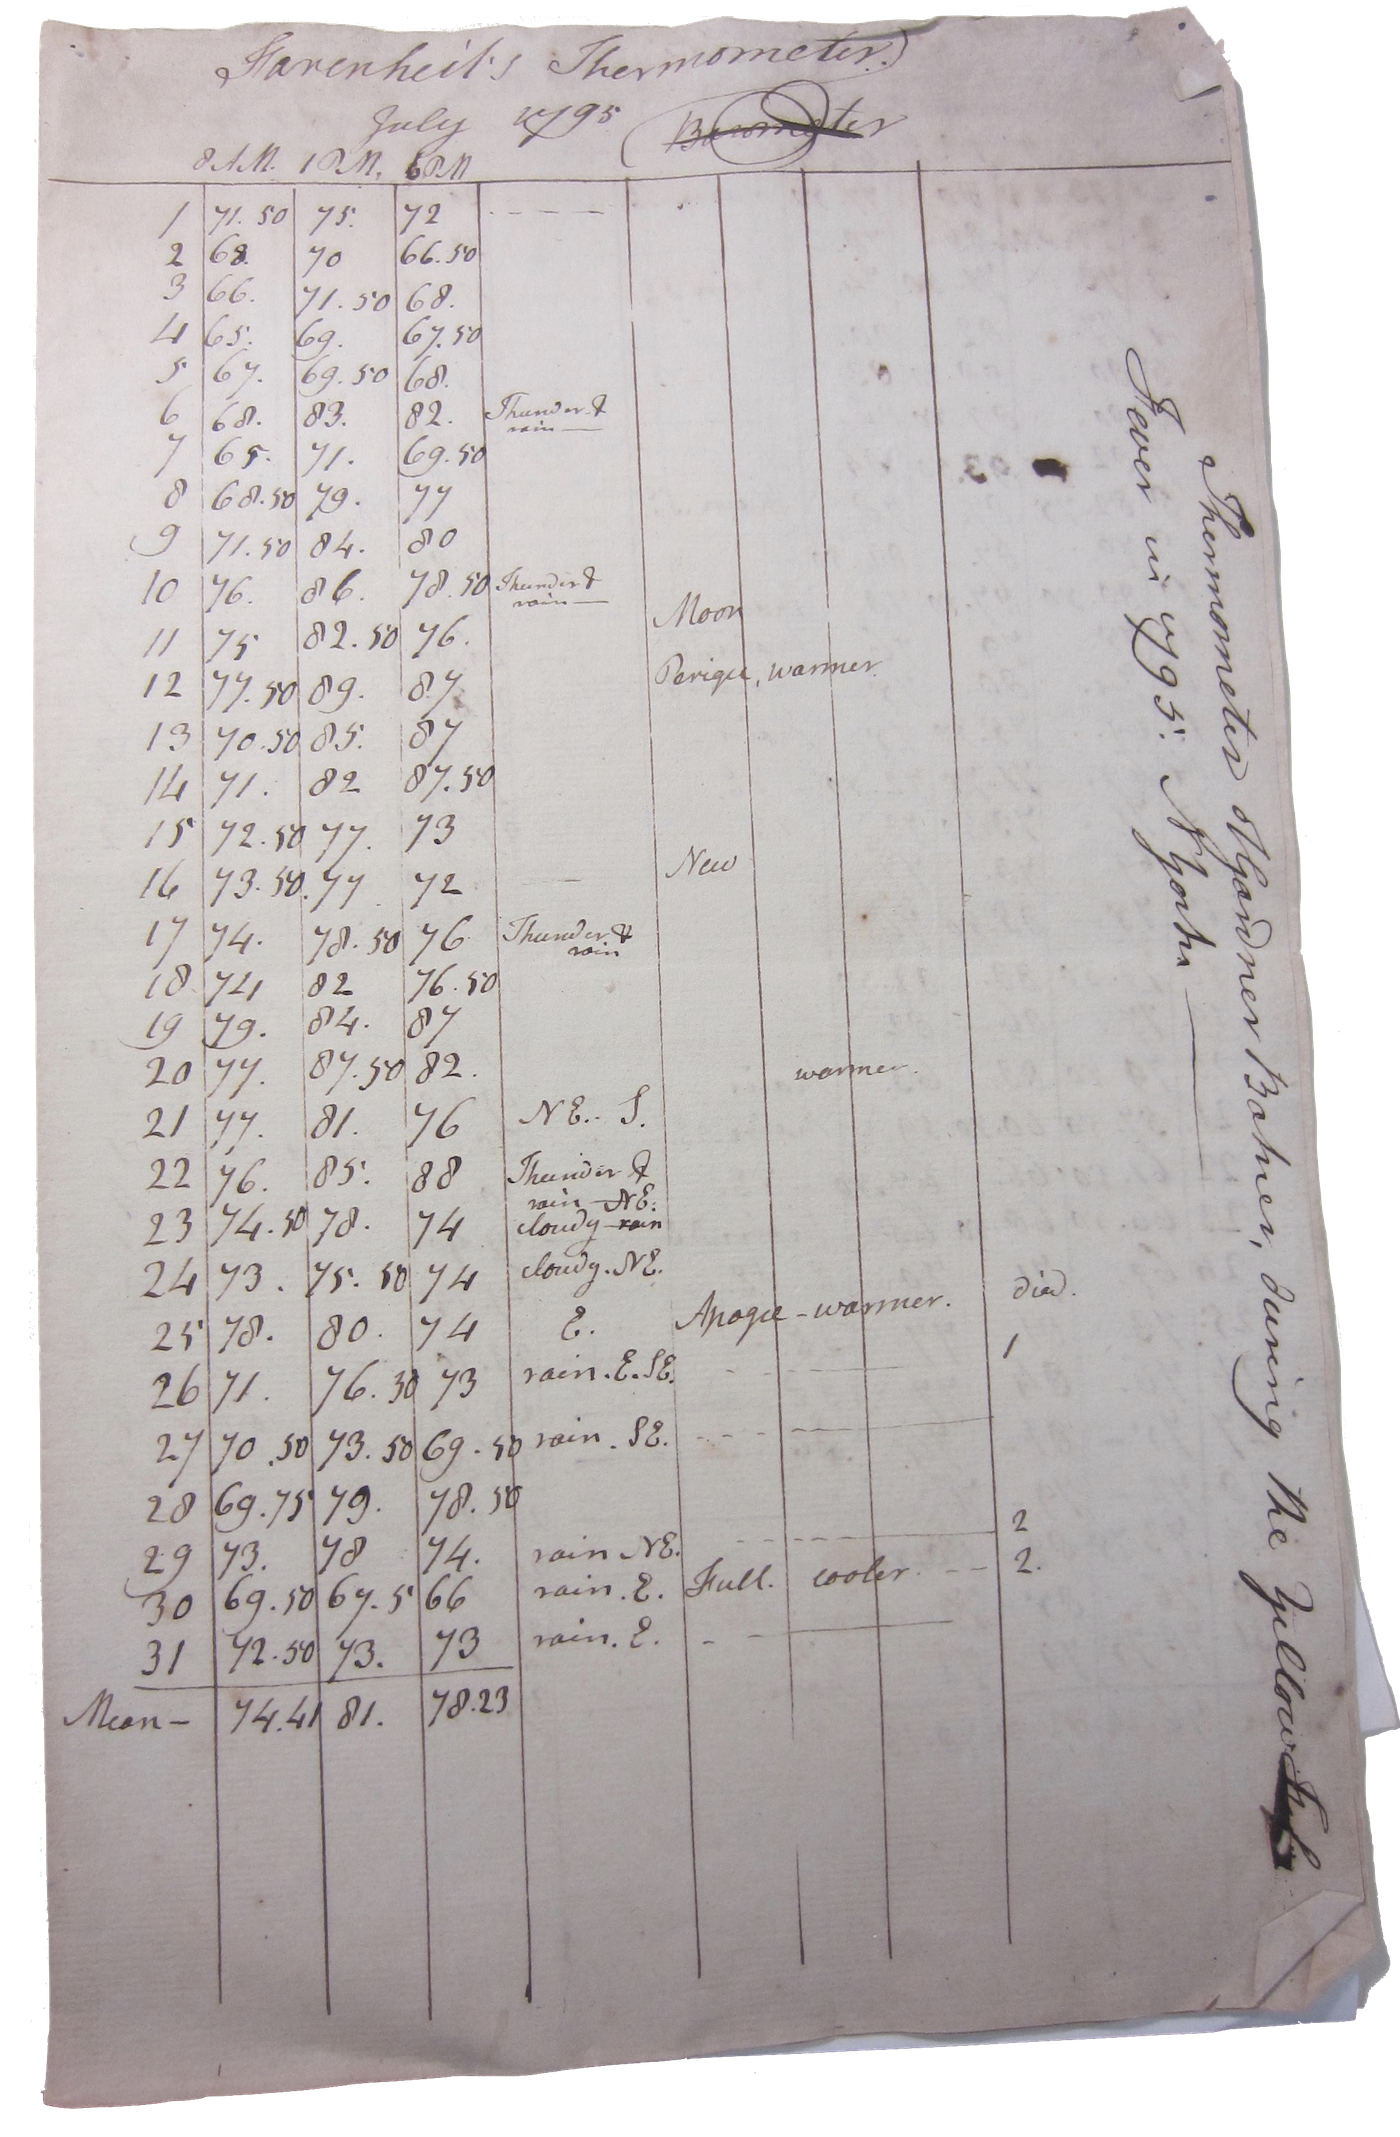 Farenheit's Thermometer.)
July 1795 (Barometer
8 A.M. 1 P.M. 6 P.M
1 71.50 75. 72 - - - -
2 68. 70 66.50
3 66. 71.50 68.
4 65. 69. 67.50
5 67. 69.50 68.
6 68. 83. 82. Thunder &
rain —
7 65. 71. 69.50
8 68.50 79. 77
9 71.50 84. 80
10 76. 86. 78.50 Thunder &
rain —
Moon
11 75 82.50 76.
12 77.50 89. 87 Perigee, warmer.
13 70.50 85. 87
14 71. 82 87.50
15 72.50 77. 73
16 73.50. 77 72 — New
17 74. 78.50 76 Thunder &
rain
18 74 82 76.50
19 79. 84. 87
20 77. 87.50 82. warmer.
21 77. 81. 76 N E.. S.
22 76. 85. 88 Thunder &
rain — NE.
23 74.50 78. 74 cloudy — rain
24 73. 75.50 74 cloudy. NE.
died.
25 78. 80. 74 E. Apogee - warmer.
26 71. 76.30 73 rain. E. SE. - - - — 1
27 70.50 73.50 69.50 rain. SE. - - - - —
28 69.75 79. 78.50
29 73. 78 74. rain NE. - - - - — 2
30 69.50 67.5 66 rain. E. Full. cooler. - - 2.
31 72.50 73. 73 rain. E. - - —
Mean - 74.41 81. 78.23
Thermometer of Gardner Baker, during the Yellow
Fever in 1795. N York —